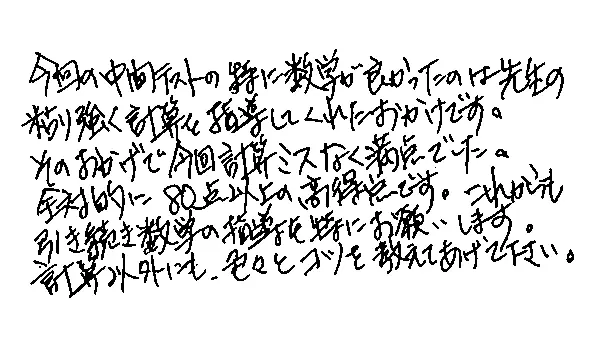 今回の中間テストの特に数学が良かったのは先生の
粘り強く計算を指導してくれたおかげです。
そのおかげで今回計算ミスなく満点でした。
全体的に80点以上の高得点です。これからも
引き続き数学の指導を特にお願いします。
計算以外にも、色々とコツを教えてあげて下さい。